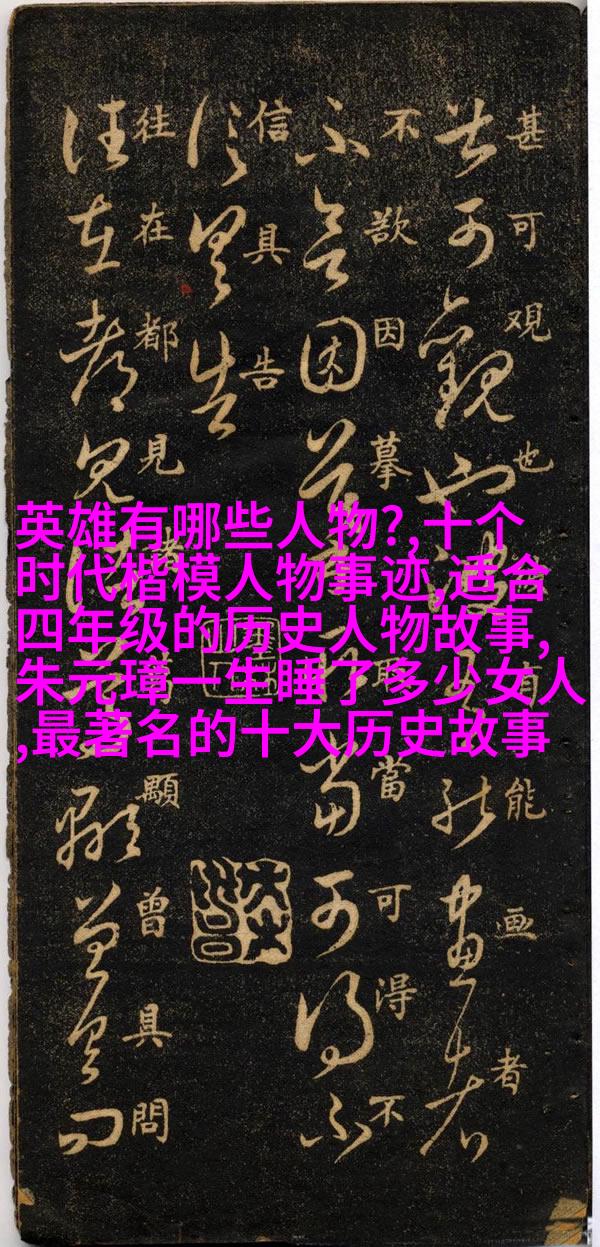 甚可観也彼有能画者
不欲因摹取當可得不
信具告
往在都見諸葛顒曾具問
英雄有哪些人物?,十个
时代楷模人物事迹,适合
四年级的历史人物故事,
朱元璋一生睡了多少女人
,最著名的十大历史故事